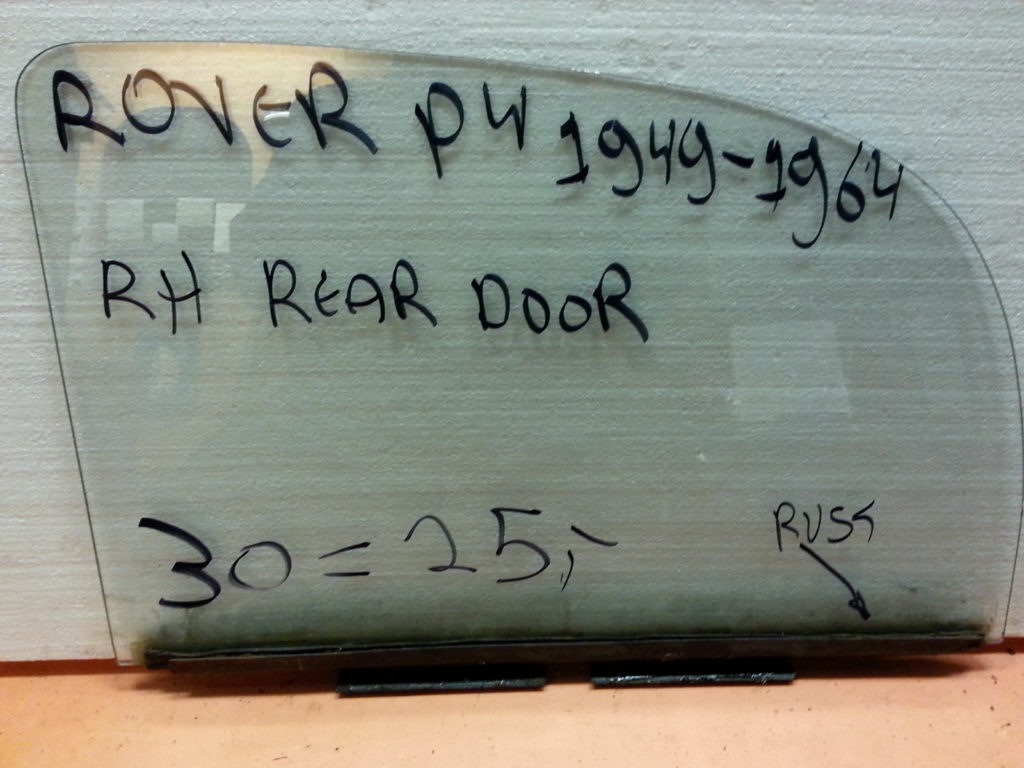 ROVER P4 1949-1964
RH REAR DOOR
30 = 25,-
RUST